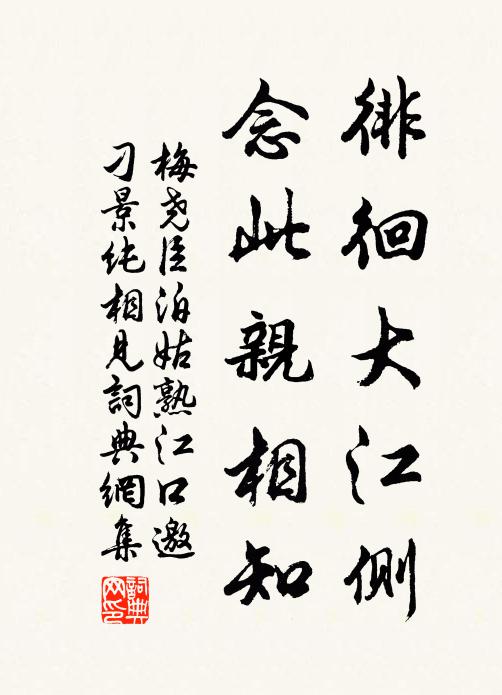 徘徊大江側
念此親相知
梅尭臣泊姑熟江口邀
刁景纯相见詞典網集
詞典
网印